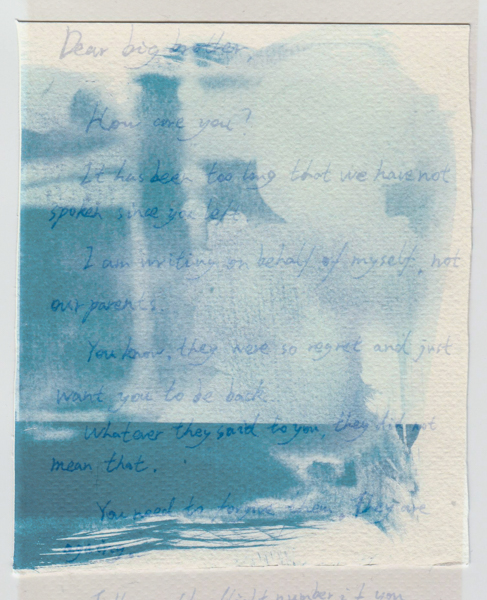 Dear big brother,
How are you?
It has been too long that we have not
spoken since you left.
I am writing on behalf of myself, not
our parents.
You know, they were so regret and just
want you to be back.
Whatever they said to you, they did not
mean that.
You need to forgive them. They are
aging.
flight number if you